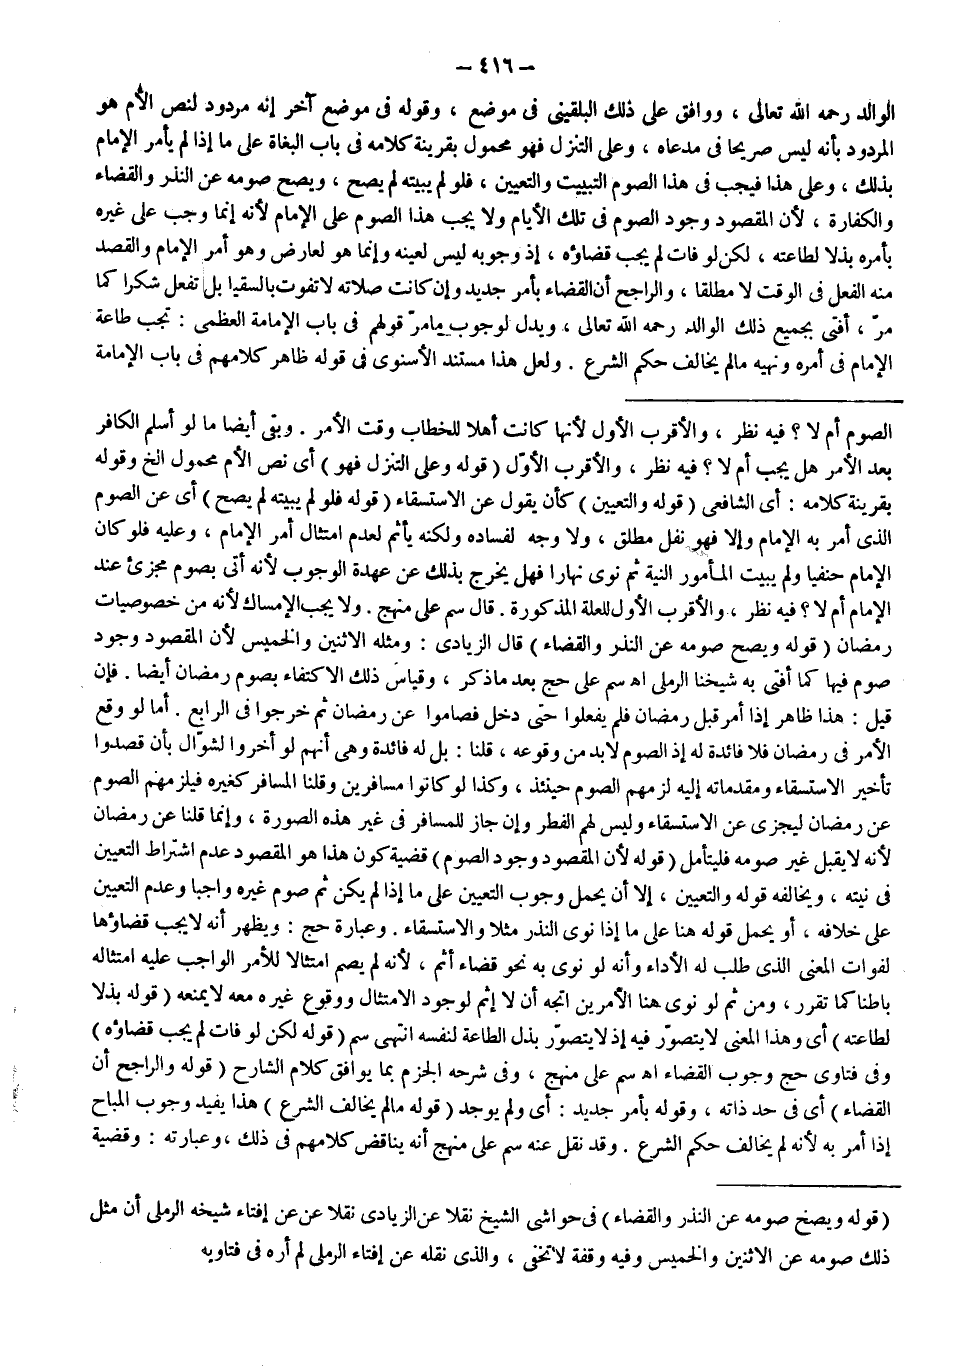 — ٤١٦ —
الوالد رحمه الله تعالى ، ووافق على ذلك البلقينى فى موضع ، وقوله فى موضع آخر إنه مردود لنص الأم هو
المردود بأنه ليس صريحا فى مدعاه ، وعلى التنزل فهو محمول بقرينة كلامه فى باب البغاة على ما إذا لم يأمر الإمام
بذلك ، وعلى هذا فيجب فى هذا الصوم التبييت والتعيين ، فلو لم يبيته لم يصح ، ويصح صومه عن النذر والقضاء
والكفارة ، لأن المقصود وجود الصوم فى تلك الأيام ولا يجب هذا الصوم على الإمام لأنه إنما وجب على غيره
بأمره بذلا لطاعته ، لكن لو فات لم يجب قضاؤه ، إذ وجوبه ليس لعينه وإنما هو لعارض وهو أمر الإمام والقصد
منه الفعل فى الوقت لا مطلقا ، والراجح أن القضاء بأمر جديد وإن كانت صلاته لاتفوت بالسقيا بل تفعل شكرا كما
مرّ ، أفتى بجميع ذلك الوالد رحمه الله تعالى ، ويدل لوجوب مامرّ قولهم فى باب الإمامة العظمى : تجب طاعة
الإمام فى أمره ونهيه مالم يخالف حكم الشرع . ولعل هذا مستند الأسنوى فى قوله ظاهر كلامهم فى باب الإمامة
الصوم أم لا ؟ فيه نظر ، والأقرب الأول لأنها كانت أهلا للخطاب وقت الأمر . وبقى أيضا ما لو أسلم الكافر
بعد الأمر هل يجب أم لا ؟ فيه نظر ، والأقرب الأوّل ( قوله وعلى التنزل فهو ) أى نص الأم محمول الخ وقوله
بقرينة كلامه : أى الشافعى ( قوله والتعيين ) كأن يقول عن الاستسقاء ( قوله فلو لم يبيته لم يصح ) أى عن الصوم
الذى أمر به الإمام وإلا فهو نفل مطلق ، ولا وجه لفساده ولكنه يأثم لعدم امتثال أمر الإمام ، وعليه فلو كان
الإمام حنفيا ولم يبيت المأمور النية ثم نوى نهارا فهل يخرج بذلك عن عهدة الوجوب لأنه أتى بصوم مجزئ عند
الإمام أم لا ؟ فيه نظر ، والأقرب الأول للعلة المذكورة . قال سم على منهج . ولا يجب الإمساك لأنه من خصوصيات
رمضان ( قوله ويصح صومه عن النذر والقضاء ) قال الزيادى : ومثله الاثنين والخميس لأن المقصود وجود
صوم فيها كما أفتى به شيخنا الرملى اه سم على حج بعد ماذكر ، وقياس ذلك الاكتفاء بصوم رمضان أيضا . فإن
قيل : هذا ظاهر إذا أمر قبل رمضان فلم يفعلوا حتى دخل فصاموا عن رمضان ثم خرجوا فى الرابع . أما لو وقع
الأمر فى رمضان فلا فائدة له إذ الصوم لابد من وقوعه ، قلنا : بل له فائدة وهى أنهم لو أخروا لشوّال بأن قصدوا
تأخير الاستسقاء ومقدماته إليه لزمهم الصوم حينئذ ، وكذا لو كانوا مسافرين وقلنا المسافر كغيره فيلزمهم الصوم
عن رمضان ليجزى عن الاستسقاء وليس لهم الفطر وإن جاز للمسافر فى غير هذه الصورة ، وإنما قلنا عن رمضان
لأنه لايقبل غير صومه فليتأمل ( قوله لأن المقصود وجود الصوم ) قضية كون هذا هو المقصود عدم اشتراط التعيين
فى نيته ، ويخالفه قوله والتعيين ، إلا أن يحمل وجوب التعيين على ما إذا لم يكن ثم صوم غيره واجبا وعدم التعيين
على خلافه ، أو يحمل قوله هنا على ما إذا نوى النذر مثلا والاستسقاء . وعبارة حج : ويظهر أنه لايجب قضاؤها
لفوات المعنى الذى طلب له الأداء وأنه لو نوى به نحو قضاء أثم ، لأنه لم يصم امتثالا للأمر الواجب عليه امتثاله
باطنا كما تقرر ، ومن ثم لو نوى هنا الأمرين اتجه أن لا إثم لوجود الامتثال ووقوع غيره معه لايمنعه ( قوله بذلا
لطاعته ) أى وهذا المعنى لايتصوّر فيه إذ لايتصوّر بذل الطاعة لنفسه انتهى سم ( قوله لكن لو فات لم يجب قضاؤه )
وفى فتاوى حج وجوب القضاء اه سم على منهج ، وفى شرحه الجزم بما يوافق كلام الشارح ( قوله والراجح أن
القضاء ) أى فى حد ذاته ، وقوله بأمر جديد : أى ولم يوجد ( قوله مالم يخالف الشرع ) هذا يفيد وجوب المباح
إذا أمر به لأنه لم يخالف حكم الشرع . وقد نقل عنه سم على منهج أنه يناقض كلامهم فى ذلك ، وعبارته : وقضية
( قوله ويصح صومه عن النذر والقضاء ) فى حواشى الشيخ نقلا عن الزيادى نقلا عن عن إفتاء شيخه الرملى أن مثل
ذلك صومه عن الاثنين والخميس وفيه وقفة لاتخفى ، والذى نقله عن إفتاء الرملى لم أره فى فتاويه